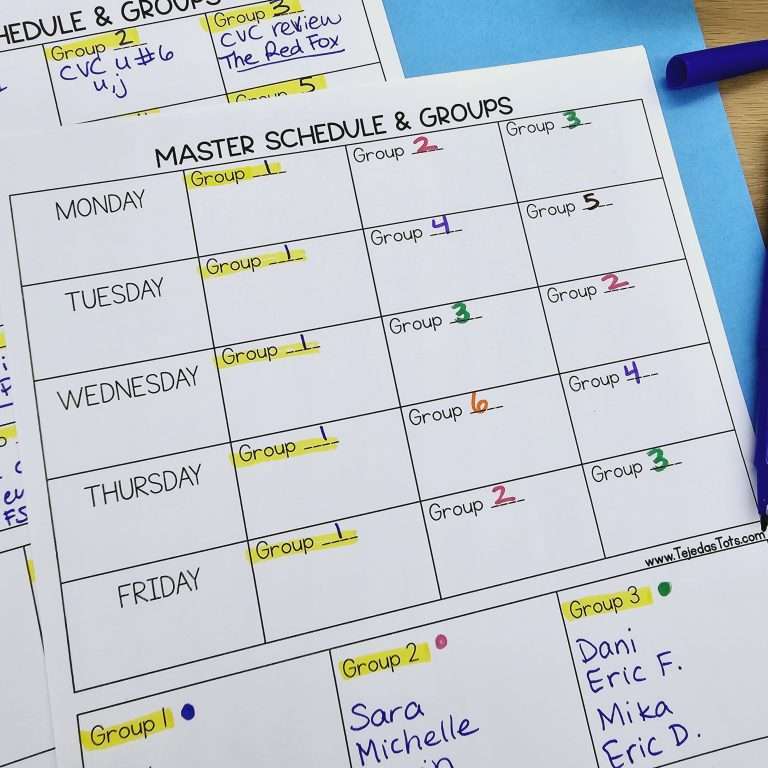 HEDULE & GROUPS
Group 2
CVC u #6
u,j
Group 3
CVC review
The Red Fox
Group 5
MASTER SCHEDULE & GROUPS
MONDAY
Group 1
Group 2
Group 3
TUESDAY
Group 1
Group 4
Group 5
WEDNESDAY
Group 1
Group 3
Group 2
THURSDAY
Group 1
Group 6
Group 4
FRIDAY
Group 1
Group 2
Group 3
www.TejedasTots.com
Group 1
Group 2
Sara
Michelle
Group 3
Dani
Eric F.
Mika
Eric D.